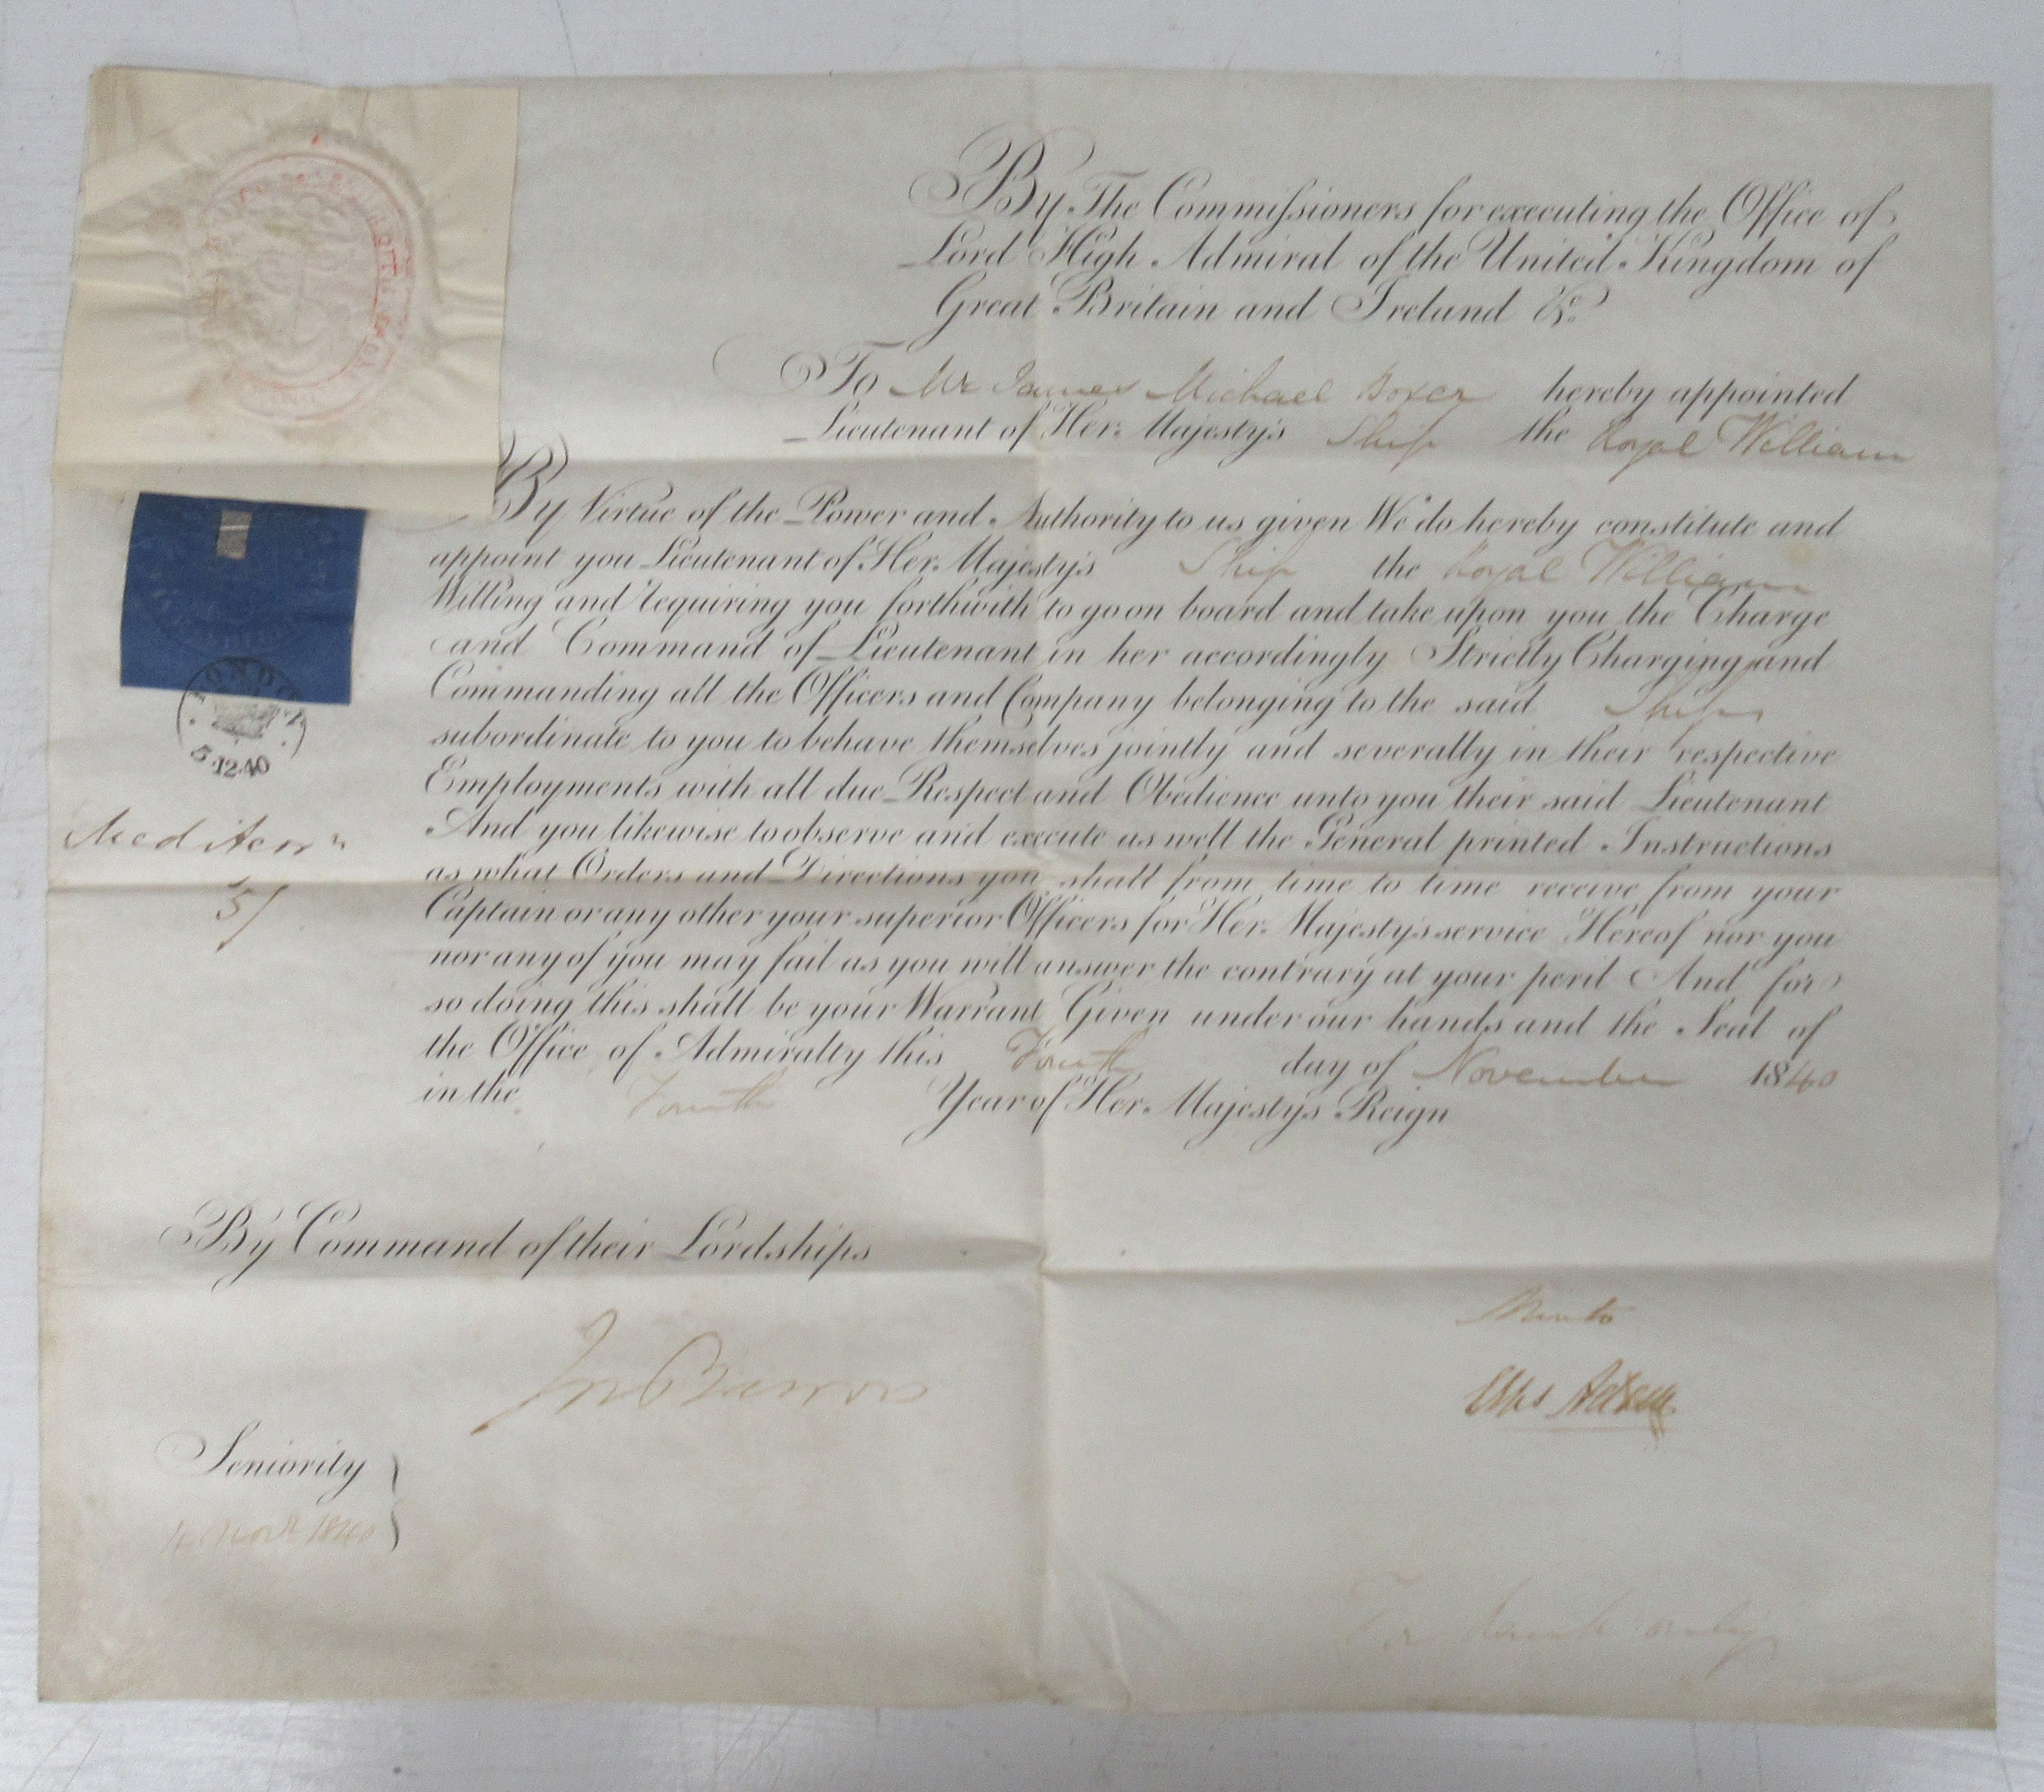 By The Commissioners for executing the Office of
Lord High Admiral of the United Kingdom of
Great Britain and Ireland &c.
To Mr James Michael Boxer hereby appointed
Lieutenant of Her Majesty's Ship the Royal William
By Virtue of the Power and Authority to us given We do hereby constitute and
appoint you Lieutenant of Her Majesty's Ship the Royal William
Willing and requiring you forthwith to go on board and take upon you the Charge
and Command of Lieutenant in her accordingly Strictly Charging and
Commanding all the Officers and Company belonging to the said Ship
subordinate to you to behave themselves jointly and severally in their respective
Employments with all due Respect and Obedience unto you their said Lieutenant
And you likewise to observe and execute as well the General printed Instructions
as what Orders and Directions you shall from time to time receive from your
Captain or any other your superior Officers for Her Majesty's service Hereof nor you
nor any of you may fail as you will answer the contrary at your peril And for
so doing this shall be your Warrant Given under our hands and the Seal of
the Office of Admiralty this Fourth day of November 1840
in the Fourth Year of Her Majesty's Reign
LONDON
5.12.40
5/
By Command of their Lordships
Jn Barrow
Minto
Chs Adam
Seniority
4 Novr 1840
For Rank only